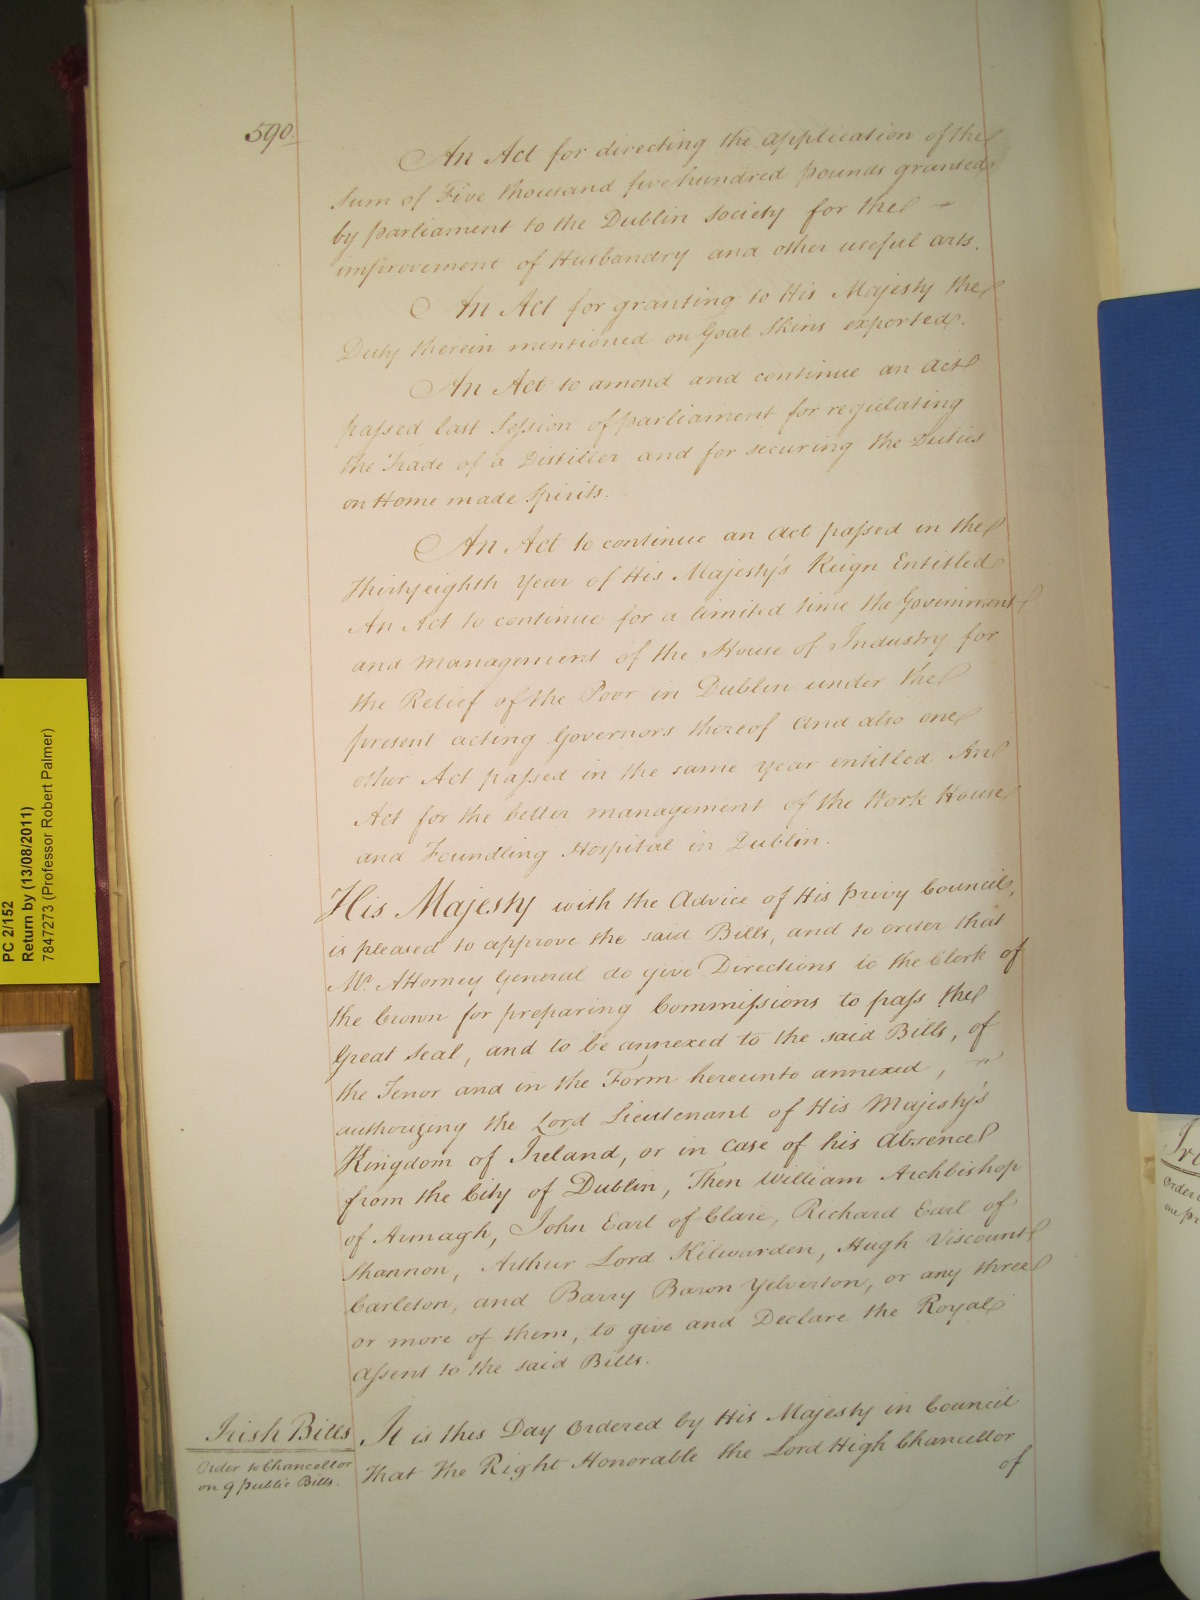 590.
An Act for directing the application of the
Sum of Five thousand five hundred pounds granted
by parliament to the Dublin Society for the
improvement of Husbandry and other useful arts.
An Act for granting to His Majesty the
Duty therein mentioned on Goat Skins exported.
An Act to amend and continue an act
passed last Session of parliament for regulating
the Trade of a Distiller and for securing the Duties
on Home made Spirits.
An Act to continue an act passed in the
Thirtyeighth Year of His Majesty's Reign Entitled
An Act to continue for a limited time the Government
and management of the House of Industry for
the Relief of the Poor in Dublin under the
present acting Governors thereof and also one
other Act passed in the same year entitled An
Act for the better management of the Work House
and Foundling Hospital in Dublin.
His Majesty with the Advice of His privy Council,
is pleased to approve the said Bills, and to order that
Mr. Attorney General do give Directions to the Clerk of
the Crown for preparing Commissions to pass the
Great Seal, and to be annexed to the said Bills, of
the Tenor and in the Form hereunto annexed,
authorizing the Lord Lieutenant of His Majesty's
Kingdom of Ireland, or in case of his Absence
from the City of Dublin, Then William Archbishop
of Armagh, John Earl of Clare, Richard Earl of
Shannon, Arthur Lord Kilwarden, Hugh Viscount
Carleton, and Barry Baron Yelverton, or any three
or more of them, to give and Declare the Royal
assent to the said Bills.
Irish Bills
Order to Chancellor
on 9 public Bills.
It is this Day Ordered by His Majesty in Council
that the Right Honorable the Lord High Chancellor
of
PC 2/152
Return by (13/08/2011)
7847273 (Professor Robert Palmer)